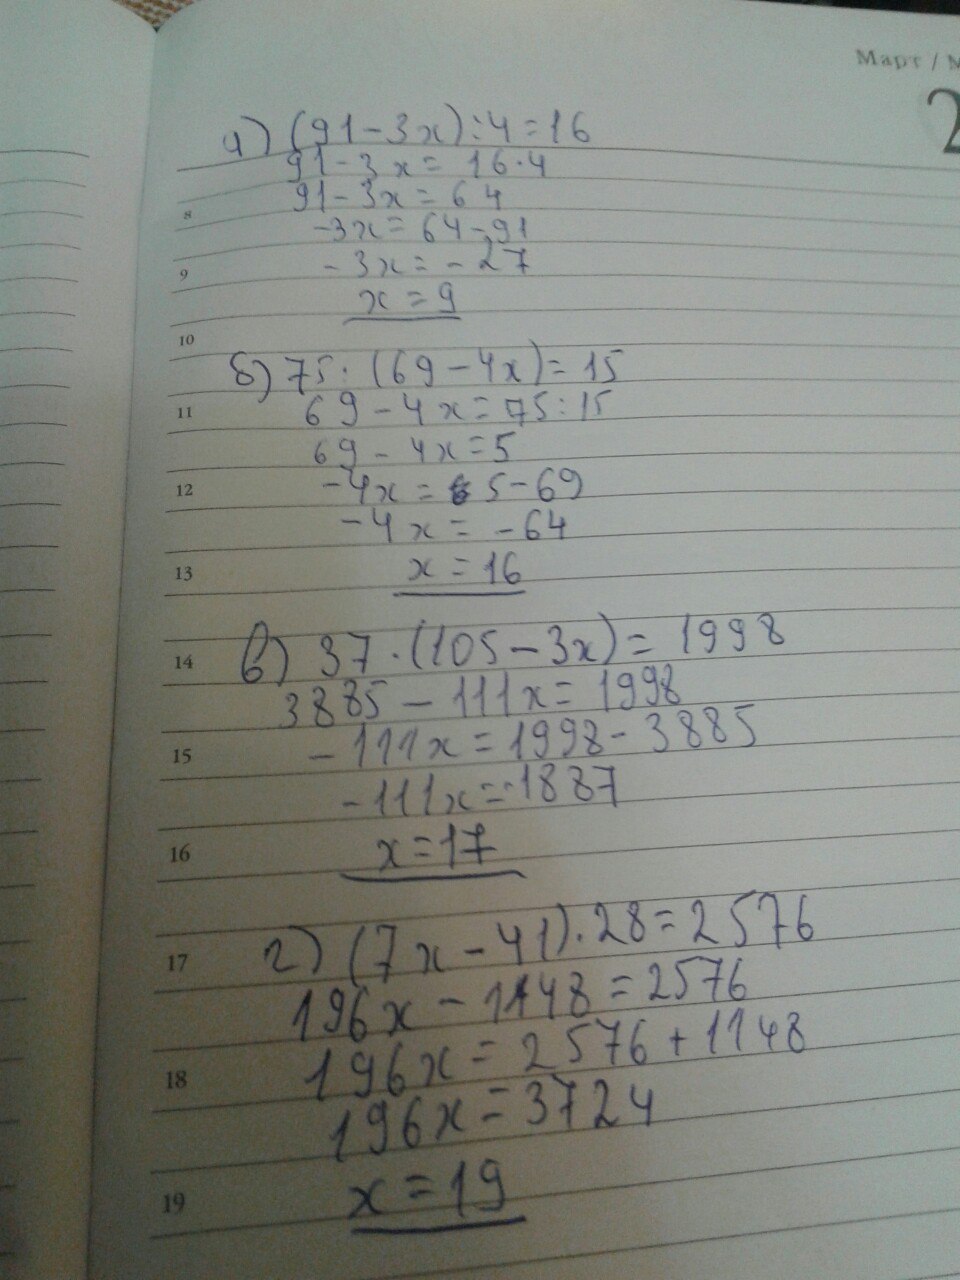 Март / М
2
а) (91-3x):4=16
91-3x=16·4
91-3x=64
8
-3x=64-91
9
-3x=-27
x=9
10
б) 75:(69-4x)=15
11
69-4x=75:15
69-4x=5
12
-4x=5-69
-4x=-64
13
x=16
14
в) 37·(105-3x)=1998
3885-111x=1998
15
-111x=1998-3885
-111x=-1887
16
x=17
17
г) (7x-41)·28=2576
196x-1148=2576
18
196x=2576+1148
196x=3724
19
x=19